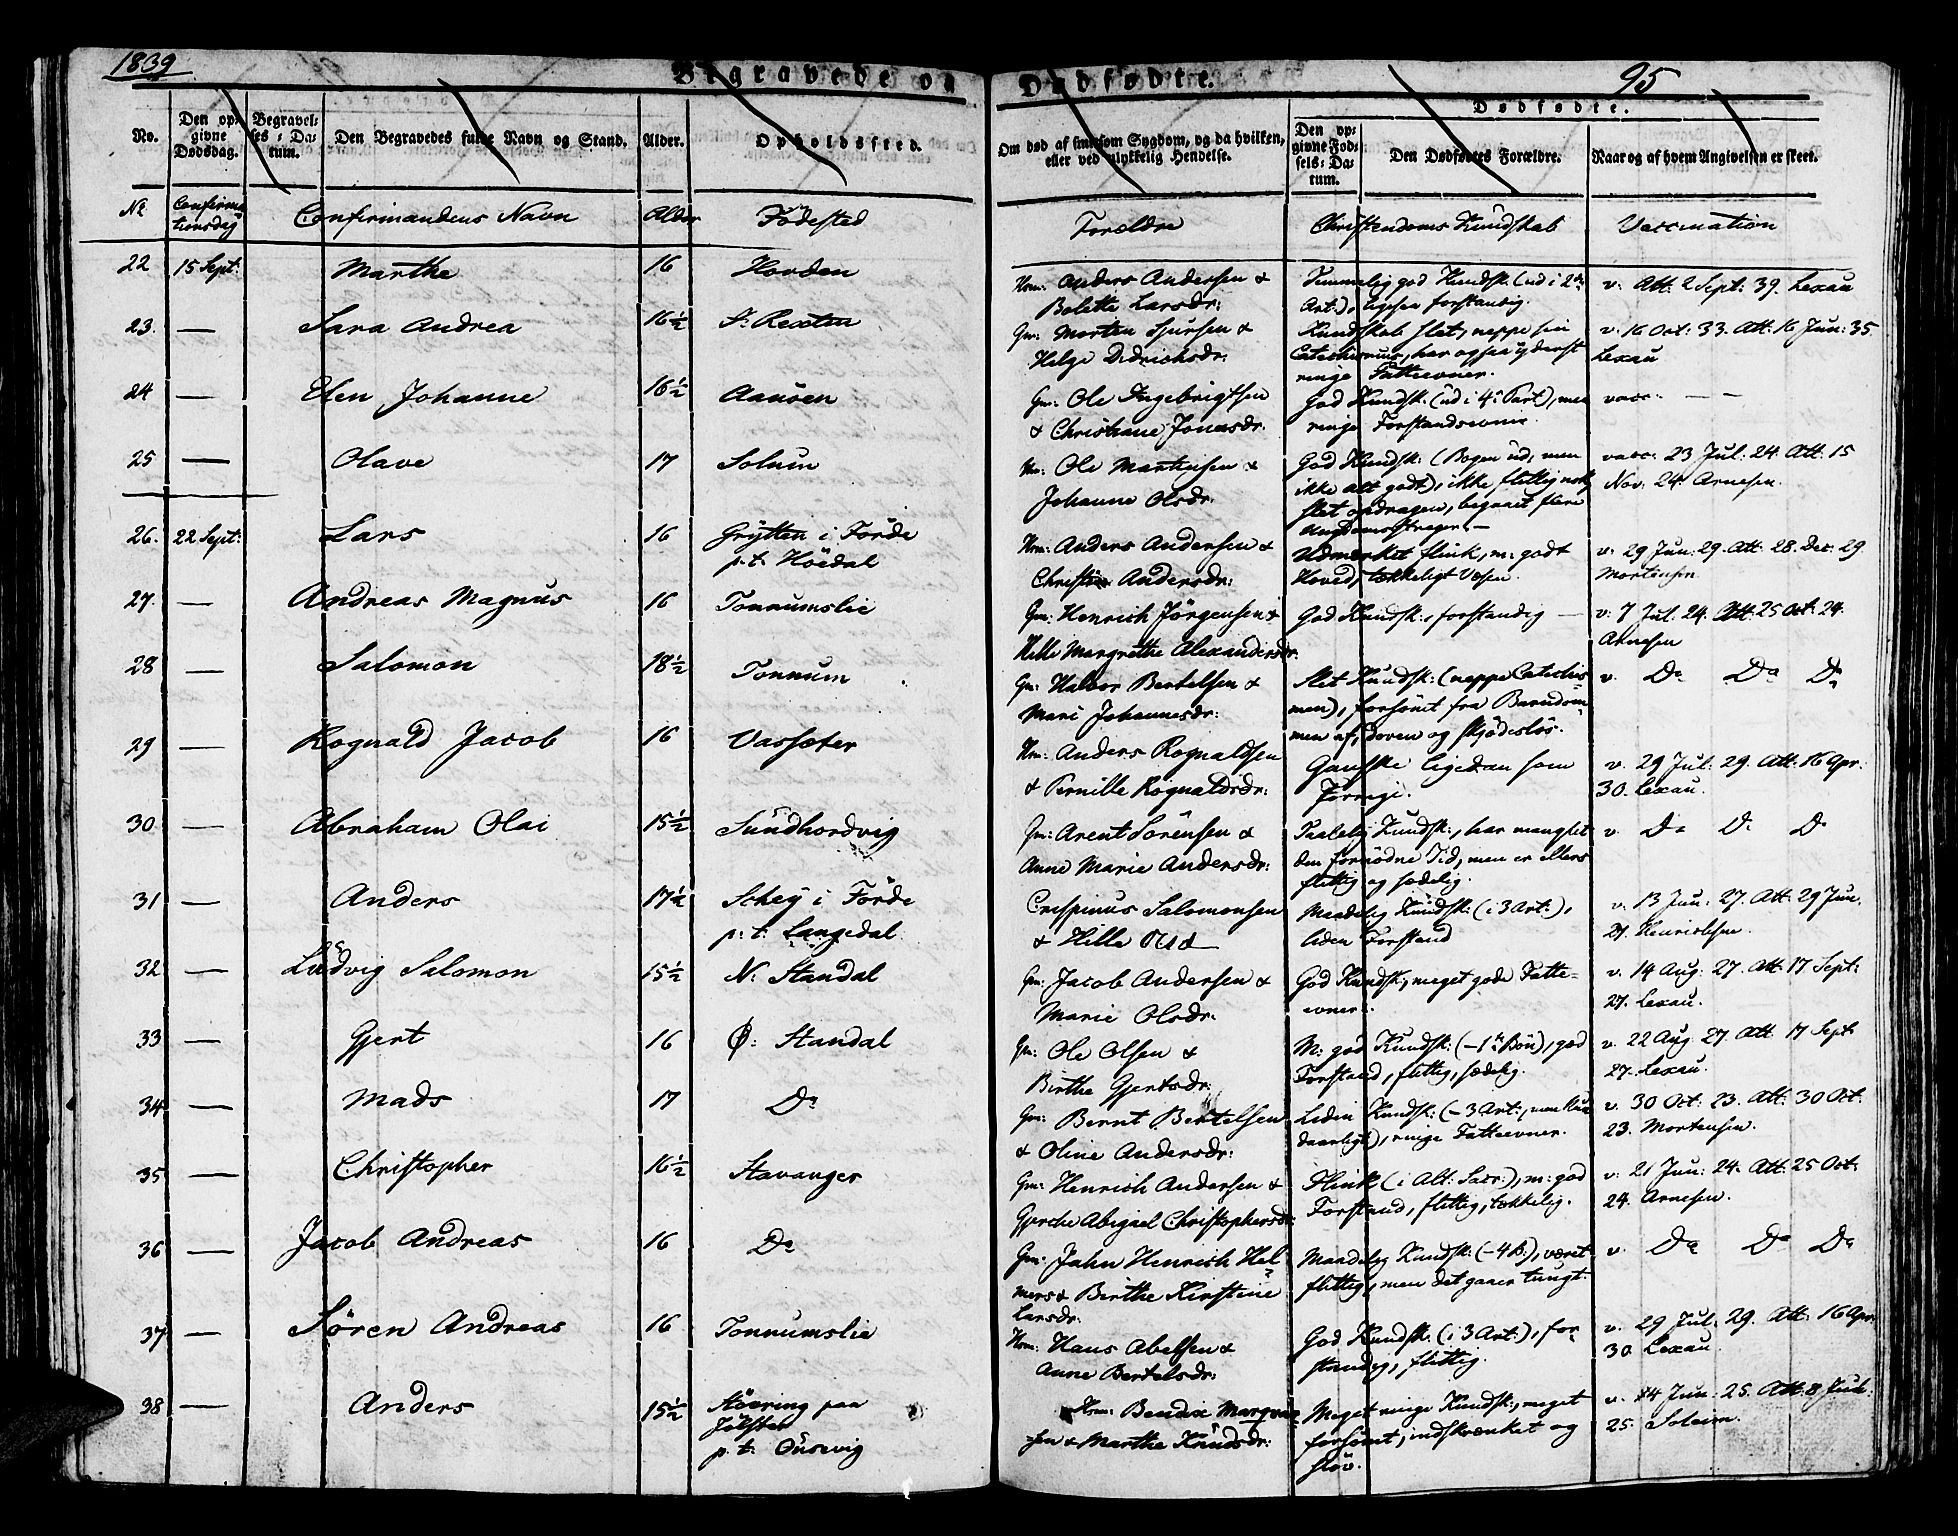 1839
95
Begravede og Dødfødte.
Dødfødte.
No.
Den op:
givne
Dødsdag.
Begravel:
ses: Da:
tum.
Den Begravedes fulde Navn og Stand.
Alder.
Opholdssted.
Om død af smitsom Sygdom, og da hvilken,
eller ved ulykkelig Hendelse.
Den op:
givne Fød:
sels: Da:
tum.
Den Dødfødtes Forældre.
Naar og af hvem Angivelsen er skeet.
No
Confirma
tionsdag
Confirmandens Navn
Alder
Födested
Forældre
Christendoms Kundskab
Vaccination
22 15 Sept: Marthe 16 Hovden
Hm: Anders Andersen &
Bolethe Larsdr:
Temmelig god Kundsk: (ud i 2den
Art:), ligesaa forstandig.
v. Att: 2 Sept: 39. Lexau
23. — Sara Andrea 16½ I: Rexten
Gm: Morten Sjursen &
Helge Didrichsdr:
Kundskab slet, neppe sin
Catechismus, har ogsaa yderst
ringe Fatteevner.
v. 16 Oct: 33. Att: 16 Jun: 35
Lexau
24 — Elen Johanne 16½ Aanöen
Gm: Ole Ingebrigtsen
& Christiane Jonasdr.
God Kundsk: (ud i 4de Part), men
ringe Forstandsevne.
vacc. — —
25 — Olave 17 Solum
Ole Mathisen &
Johanne Olsdr.
God Kundsk: (Bogen ud, men
ikke alt godt), ikke flittig nok,
slet opdragen, begaaet flere
Ungdomsstreger. —
vacc. 23 Jul: 24. Att: 15
Nov: 24. Arnesen.
26. 22 Sept: Lars 16 Grytten i Förde
p.t. Höedal
Hm: Anders Andersen &
Christine Andersdr:
Udmærket flink, m: godt
Hoved, tækkeligt Væsen.
v. 29 Jun: 29. Att: 28. Dec: 29
Mortensen
27. — Andreas Magnus 16 Tonnumslie
Gm: Henrich Jörgensen &
Hille Margrethe Alexandersdr.
God Kundsk:, forstandig —
v. 7 Jul: 24. Att: 25 Oct: 24.
Arnesen
28 — Salomon 18½ Tonnum
Gm: Halvor Bertelsen &
Mari Johannesdr:
Slet Kundsk: (neppe Catechis=
men), forsömt fra Barndom=
men af, doven og skjödeslös.
v. Do Do Do
29 — Rognald Jacob 16 Vassæter
Hm: Anders Rognaldsen
& Pernille Rognaldsdr:
Ganske ligedan som
Forrige.
v. 29 Jul: 29. Att: 16 Apr:
30. Lexau.
30. — Abraham Olai 15½ Sundhordvig
Gm: Arent Sörensen &
Anne Marie Andersdr:
Taalelig Kundsk:, har manglet
den fornödne Tid, men er ellers
flittig og sædelig.
v. Do Do Do
31 — Anders 17½ Schey i Förde
p: t: Langedal
Crispinus Salomonsen
& Hille Olsd
Maadelig Kundsk: (i 3 Art:),
liden Forstand
v. 13 Jun: 27. Att: 29 Jun.
27. Henrichsen.
32 — Ludvig Salomon 15½ N: Standal
Gm: Jacob Andersen &
Marie Olsdr:
God Kundsk:, meget gode Fatte-
evner.
v. 14 Aug: 27. Att: 17 Sept:
27. Lexau.
33 — Gjert 16 Ø: Standal
Gm: Ole Olsen &
Birthe Gjertsdr:
M: god Kundsk: (-1ste Bön), god
Forstand, flittig, sædelig.
v. 22 Aug: 27. Att 17 Sept
27. Lexau.
34 — Mads 17 Do
Gm: Bernt Bertelsen
& Oline Andersdr:
Liden Kundsk: (-3 Art:, men kun
daarligt), ringe Fatteevner.
v. 30 Oct: 23. Att: 30 Oct.
23. Mortensen.
35 — Christopher 16½ Stavanger
Gm: Henrich Andersen &
Gjerche Abigael Christophersdr:
Flink (i Alt: Sacr:), m: god
Forstand, flittig, tækkelig.
v. 21 Jun: 24. Att: 25 Oct:
24. Arnesen.
36 — Jacob Andreas 16 Do
Gm: Jahn Henrich Hel=
mers & Birthe Kirstine
Larsdr:
Maadelig Kundsk: (-4 B:), været
flittig, men det gaaer tungt.
v. Do Do Do
37 — Sören Andreas 16 Tonnumslie
Hm: Hans Abelsen &
Anne Bertelsdr:
God Kundsk: (i 3 Art:), for=
standig, flittig.
v. 29 Jul: 29. Att: 16 Apr:
30. Lexau.
38 — Anders 15½ Stöering paa
Jölster
p: t: Ousevig
Hm: Bendix Margven
sen & Marthe Knudsdr:
Meget ringe Kundsk:, meget
forsömt, indskrænket og
slöv.
v. 14 Jun: 25. Att: 8 Juli
25. Soleim.